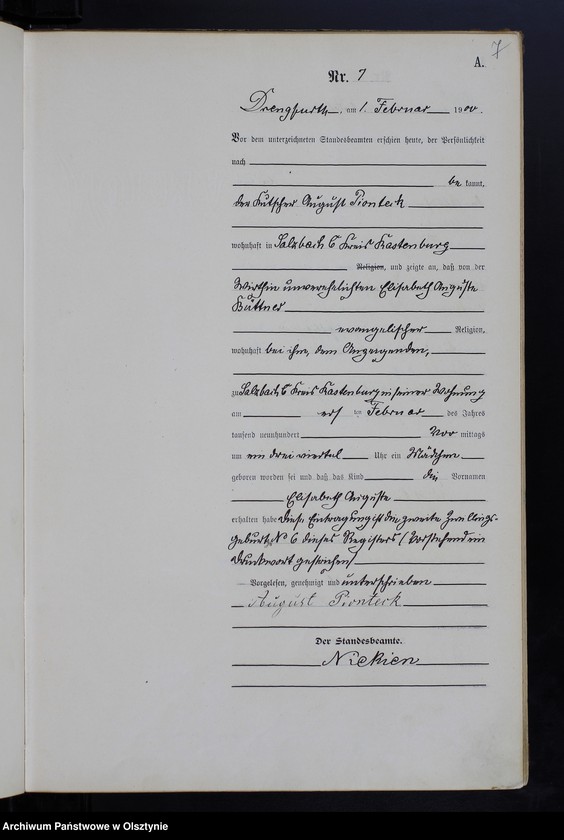 7
A.
Nr. 7
Drengfurth, am 1. Februar 1900.
Vor dem unterzeichneten Standesbeamten erschien heute, der Persönlichkeit
nach
be kannt,
der Kutscher August Pionteck
wohnhaft in Salzbach C Kreis Rastenburg
Religion, und zeigte an, daß von der
Wirthin unverehelichten Elisabeth Auguste
Büttner
evangelischer Religion,
wohnhaft bei ihm, dem Anzeigenden,
zu Salzbach C Kreis Rastenburg in seiner Wohnung
am ersten Februar des Jahres
tausend neunhundert Vor mittags
um ein drei viertel Uhr ein Mädchen
geboren worden sei und daß das Kind die Vornamen
Elisabeth Auguste
erhalten habe Diese Eintragung ist die zweite Zwillings-
geburt N° 6 dieses Registers (Vorstehend ein
Druckwort gestrichen)
Vorgelesen, genehmigt und unterschrieben
August Pionteck
Der Standesbeamte.
Nickien
Archiwum Państwowe w Olsztynie